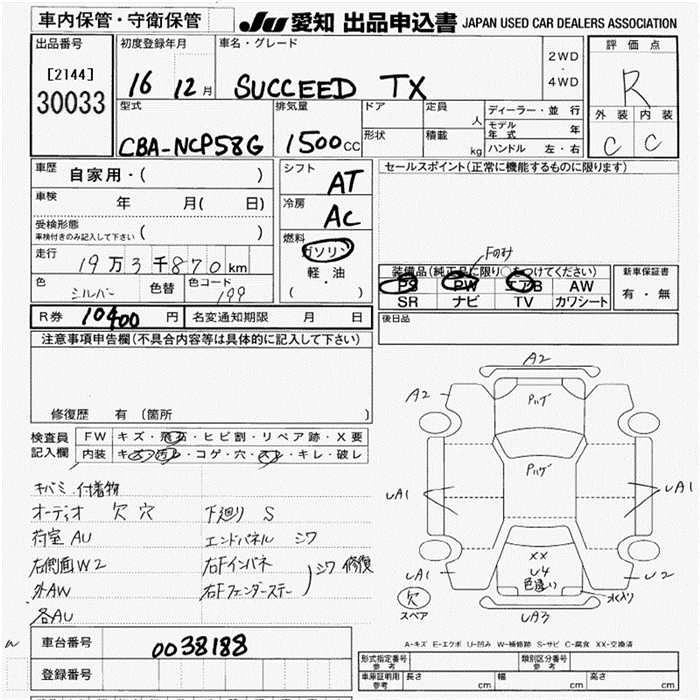 車内保管・守衛保管
JU 愛知 出品申込書 JAPAN USED CAR DEALERS ASSOCIATION
出品番号
[2144]
30033
初度登録年月
16 12月
車名・グレード
SUCCEED TX
2WD
・
4WD
評価点
R
外装 内装
C C
型式
CBA-NCP58G
排気量
1500cc
ドア
形状
定員 人
積載 kg
ディーラー・並行
モデル年式 年
ハンドル 左・右
車歴
自家用・( )
車検
年 月( 日)
受検形態
車検付きのみ記入して下さい ( )
走行
19万3千870km
色
シルバー
色替
色コード
199
シフト
AT
冷房
AC
燃料
ガソリン
軽・油
( )
セールスポイント(正常に機能するものに限ります)
Fのみ
装備品(純正品に限り○をつけてください)
PS PW エアB AW
SR ナビ TV カワシート
新車保証書
有・無
R券 10400円
名変通知期限 月 日
後日品
注意事項申告欄(不具合内容等は具体的に記入して下さい)
修復歴 有 (箇所 )
検査員
記入欄
FW キズ・飛石・ヒビ割・リペア跡・X要
内装 キズ・汚れ・コゲ・穴・スレ・キレ・破レ
キバミ 付着物
オーディオ 欠 穴
荷室 AU
右側面W2
外AW
各AU
下廻り S
エンドパネル シワ
右Fインパネ
右Fフェンダーステー
シワ 修復
A2
A2
ハゲ
ハゲ
UA1
UA1
XX
U4
色違い
UA1
U2
水入り
欠
スペア
UA3
A-キズ E-エクボ U-凹み W-補修跡 S-サビ C-腐食 XX-交換済
車台番号
0038188
登録番号
形式指定番号
参考
類別区分番号
参考
車庫証明用
参考
長さ cm
幅 cm
高さ cm